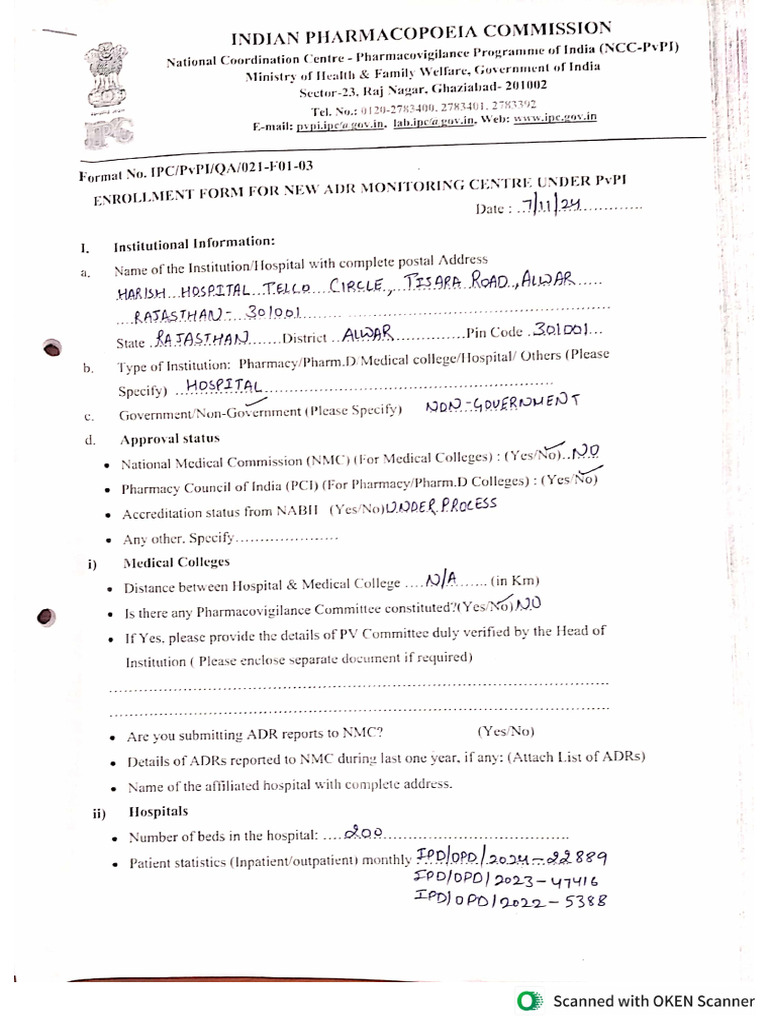 INDIAN PHARMACOPOEIA COMMISSION
National Coordination Centre - Pharmacovigilance Programme of India (NCC-PvPI)
Ministry of Health & Family Welfare, Government of India
Sector-23, Raj Nagar, Ghaziabad- 201002
Tel. No.: 0120-2783400, 2783401, 2783392
E-mail: pvpi.ipc@gov.in, lab.ipc@gov.in, Web: www.ipc.gov.in
IPC
Format No. IPC/PvPI/QA/021-F01-03
ENROLLMENT FORM FOR NEW ADR MONITORING CENTRE UNDER PvPI
Date : 7/11/24
I. Institutional Information:
a. Name of the Institution/Hospital with complete postal Address
HARISH HOSPITAL TELCO CIRCLE, TIJARA ROAD, ALWAR
RAJASTHAN- 301001
State RAJASTHAN District ALWAR Pin Code 301001
b. Type of Institution: Pharmacy/Pharm.D/Medical college/Hospital/ Others (Please
Specify) HOSPITAL
c. Government/Non-Government (Please Specify) NON-GOVERNMENT
d. Approval status
• National Medical Commission (NMC) (For Medical Colleges) : (Yes/No) NO
• Pharmacy Council of India (PCI) (For Pharmacy/Pharm.D Colleges) : (Yes/No)
• Accreditation status from NABH (Yes/No) UNDER PROCESS
• Any other, Specify....................
i) Medical Colleges
• Distance between Hospital & Medical College ....N/A....... (in Km)
• Is there any Pharmacovigilance Committee constituted?(Yes/No) NO
• If Yes, please provide the details of PV Committee duly verified by the Head of
Institution ( Please enclose separate document if required)
• Are you submitting ADR reports to NMC? (Yes/No)
• Details of ADRs reported to NMC during last one year, if any: (Attach List of ADRs)
• Name of the affiliated hospital with complete address.
ii) Hospitals
• Number of beds in the hospital: 200
• Patient statistics (Inpatient/outpatient) monthly IPD/OPD/2024-22889
IPD/OPD/2023-47416
IPD/OPD/2022-5388
Scanned with OKEN Scanner